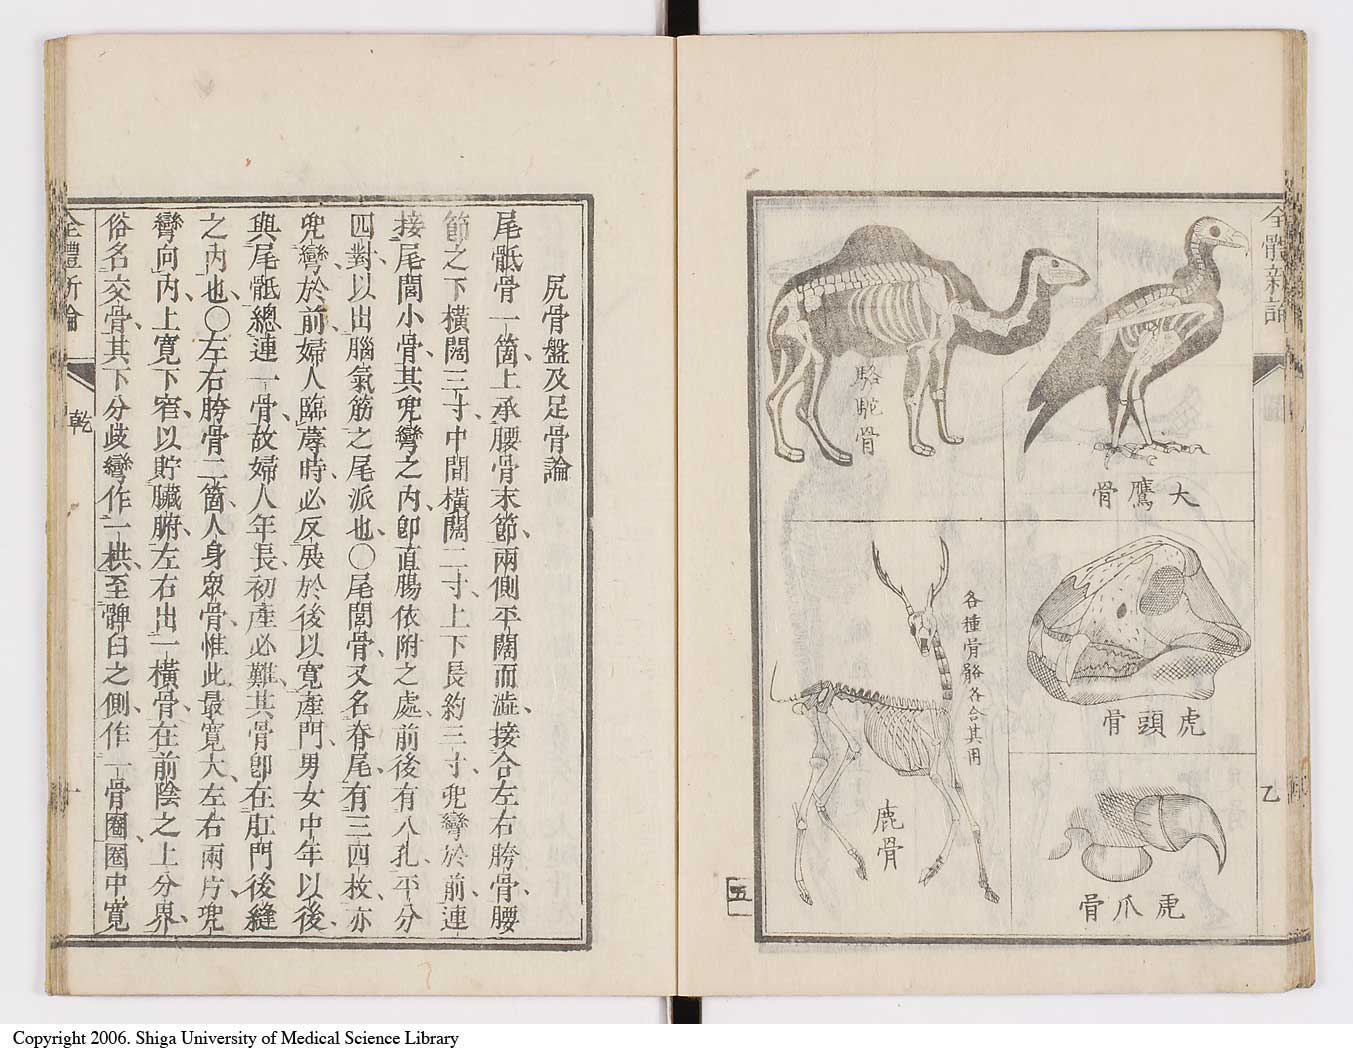 全體新論
乙
大鷹骨
駱駝骨
虎頭骨
各種骨骼各合其用
鹿骨
虎爪骨
五
尻骨盤及足骨論
尾骶骨一箇、上承腰骨末節、兩側平闊而澁、接合左右胯骨、腰
節之下橫闊三寸、中間橫闊二寸、上下長約三寸、兜彎於前、連
接尾閭小骨、其兜彎之内、卽直腸依附之處、前後有八孔、平分
四對、以出腦氣筋之尾派也、〇尾閭骨、又名脊尾、有三四枚、亦
兜彎於前、婦人臨蓐時、必反展於後、以寬產門、男女中年以後、
與尾骶總連一骨、故婦人年長、初產必難、其骨卽在肛門後縫
之内也、〇左右胯骨二箇、人身眾骨、惟此最寬大、左右兩片、兜
彎向内、上寬下窄、以貯臟腑、左右出一橫骨、在前陰之上分界、
俗名交骨、其下分歧彎作一栱、至髀臼之側、作一骨圈、圈中寬
全體新論
乾
Copyright 2006. Shiga University of Medical Science Library